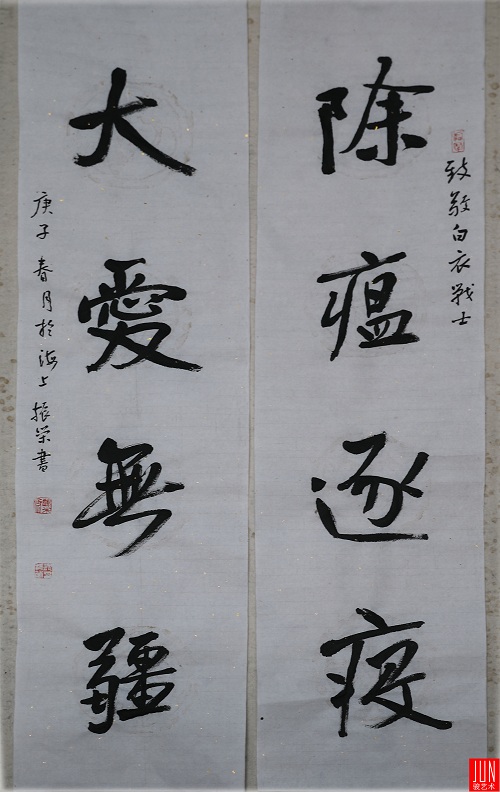 致敬白衣战士
除瘟逐疫
大愛無疆
庚子春月於海上振荣書
JUN
骏艺术